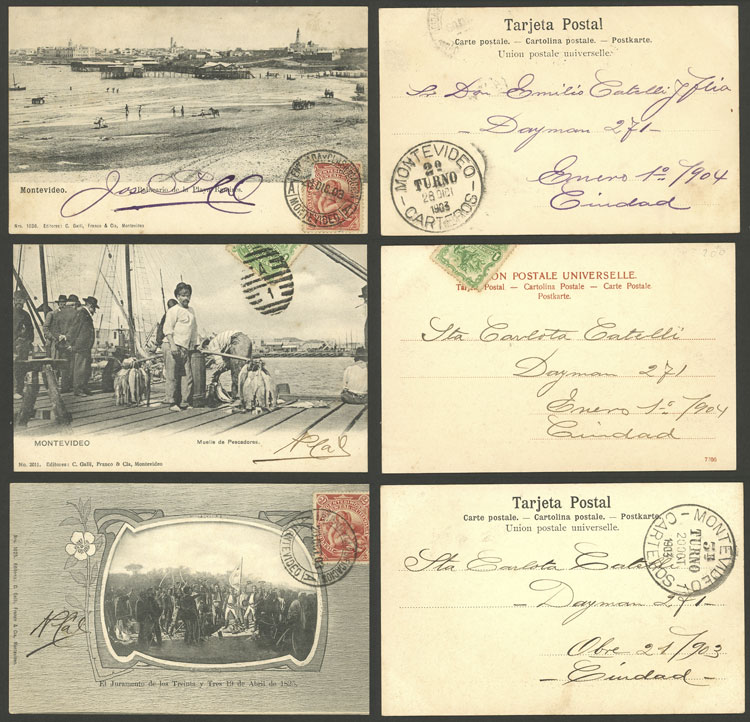 Montevideo.
Balneario de la Playa Ramirez
Nro. 1628. Editores: C. Galli, Franco & Cia, Montevideo
MONTEVIDEO
Tarjeta Postal
Carte postale. — Cartolina postale. — Postkarte.
Union postale universelle.
Sr Don Emilio Catelli y flia
- Dayman 271 -
Enero 1º/904
Ciudad
MONTEVIDEO
2º
TURNO
28 DIC
1903
CARTEROS
MONTEVIDEO
Muelle de Pescadores.
No. 2011. Editores: C. Galli, Franco & Cia, Montevideo
1
ON POSTALE UNIVERSELLE.
Tarj Postal — Cartolina Postale — Carte Postale.
Postkarte.
200
Sta Carlota Catelli
Dayman 271
Enero 1º/904
Ciudad
7766
El Juramento de los Treinta y Tres 19 de Abril de 1825.
MONTEVIDEO
Tarjeta Postal
Carte postale. — Cartolina postale. — Postkarte.
Union postale universelle.
Sta Carlota Catelli
- Dayman 271 -
Obre 21/903
- Ciudad -
MONTEVIDEO
TURNO
1903
CARTEROS